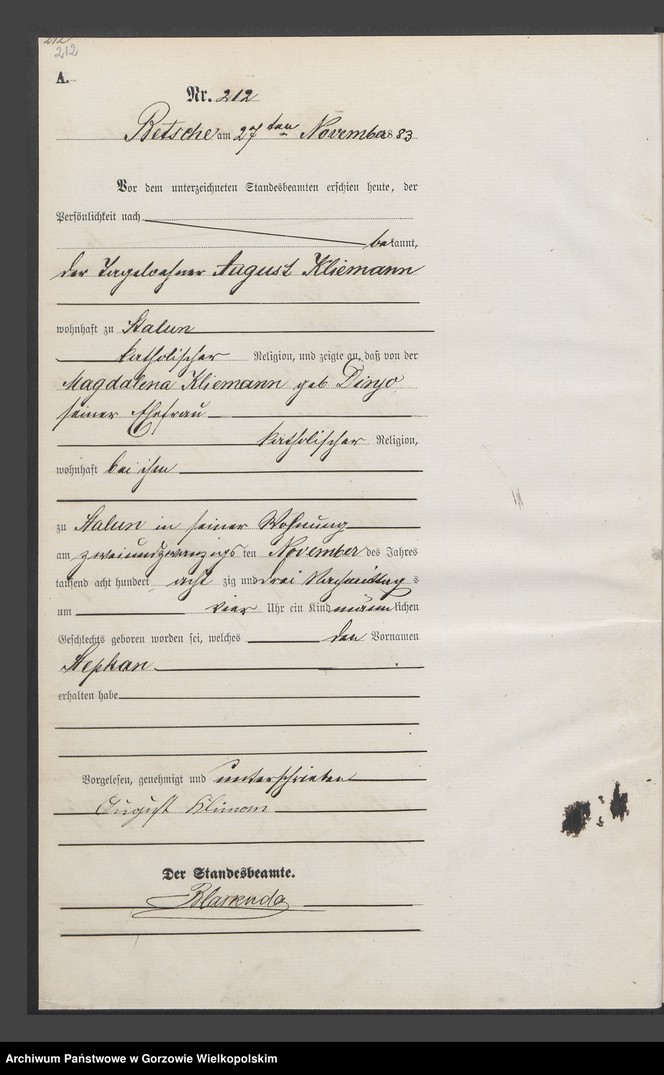 212
212
A.
Nr. 212
Betsche am 27 ten November 83
Vor dem unterzeichneten Standesbeamten erschien heute, der
Persönlichkeit nach
bekannt,
der Tageloehner August Kliemann
wohnhaft zu Stalun
katholischer Religion, und zeigte an, daß von der
Magdalena Kliemann geb
seiner Ehefrau
katholischer Religion,
wohnhaft bei ihm
zu Stalun in seiner Wohnung
am zweiundzwanzigs ten November des Jahres
tausend acht hundert acht zig und drei Nachmittag s
um vier Uhr ein Kind männlichen
Geschlechts geboren worden sei, welches den Vornamen
Stephan
erhalten habe
Vorgelesen, genehmigt und unterschrieben
August Kliman
Der Standesbeamte.
Archiwum Państwowe w Gorzowie Wielkopolskim